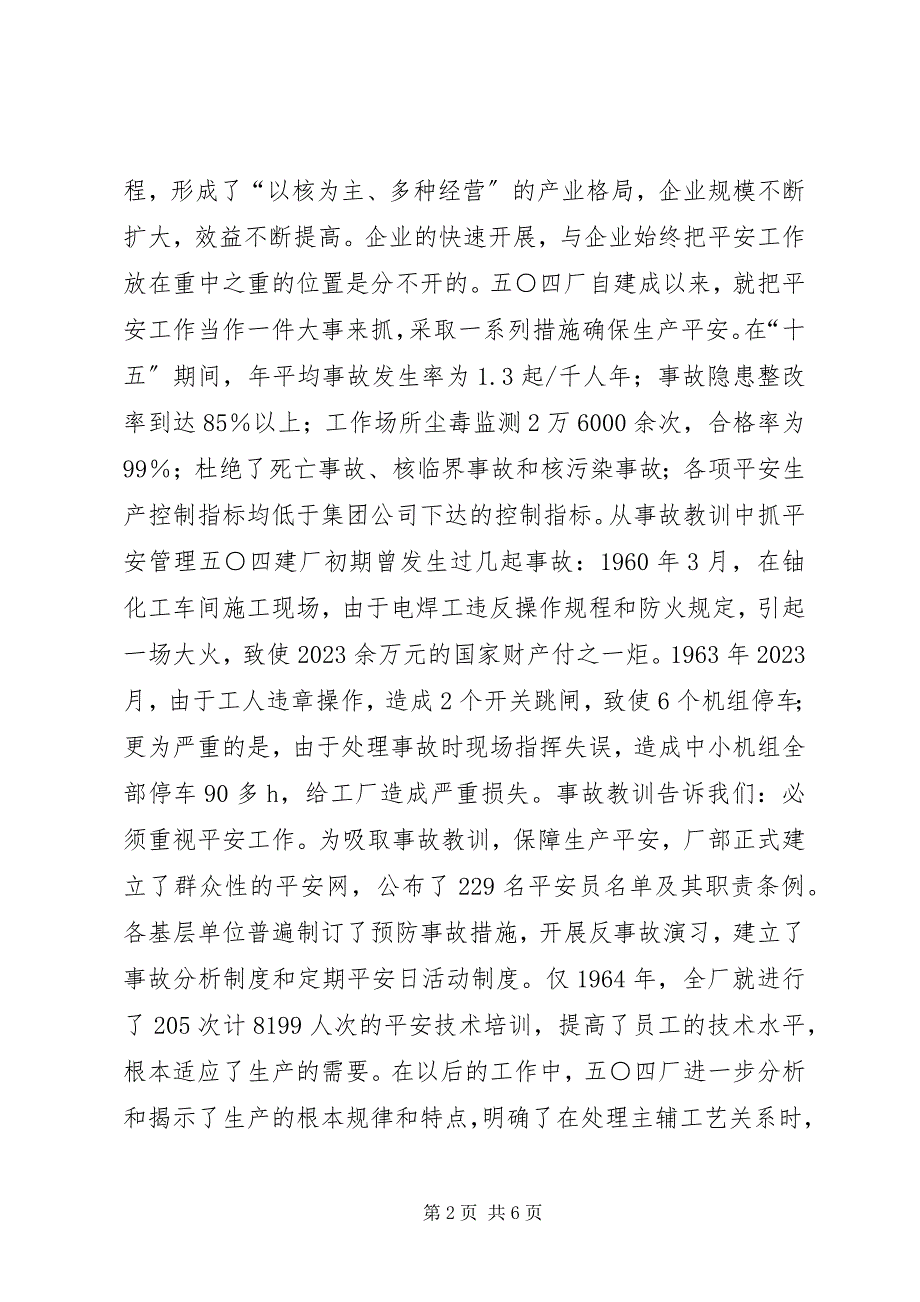 程，形成了“以核为主、多种经营〞的产业格局，企业规模不断
扩大，效益不断提高。企业的快速开展，与企业始终把平安工作
放在重中之重的位置是分不开的。五〇四厂自建成以来，就把平
安工作当作一件大事来抓，采取一系列措施确保生产平安。在“十
五〞期间，年平均事故发生率为 1.3 起/千人年；事故隐患整改
率到达 85％以上；工作场所尘毒监测 2 万 6000 余次，合格率为
99％；杜绝了死亡事故、核临界事故和核污染事故；各项平安生
产控制指标均低于集团公司下达的控制指标。从事故教训中抓平
安管理五〇四建厂初期曾发生过几起事故：1960 年 3 月，在铀
化工车间施工现场，由于电焊工违反操作规程和防火规定，引起
一场大火，致使 2023 余万元的国家财产付之一炬。1963 年 2023
月，由于工人违章操作，造成 2 个开关跳闸，致使 6 个机组停车；
更为严重的是，由于处理事故时现场指挥失误，造成中小机组全
部停车 90 多 h，给工厂造成严重损失。事故教训告诉我们：必
须重视平安工作。为吸取事故教训，保障生产平安，厂部正式建
立了群众性的平安网，公布了 229 名平安员名单及其职责条例。
各基层单位普遍制订了预防事故措施，开展反事故演习，建立了
事故分析制度和定期平安日活动制度。仅 1964 年，全厂就进行
了 205 次计 8199 人次的平安技术培训，提高了员工的技术水平，
根本适应了生产的需要。在以后的工作中，五〇四厂进一步分析
和揭示了生产的根本规律和特点，明确了在处理主辅工艺关系时，
第 2 页 共 6 页